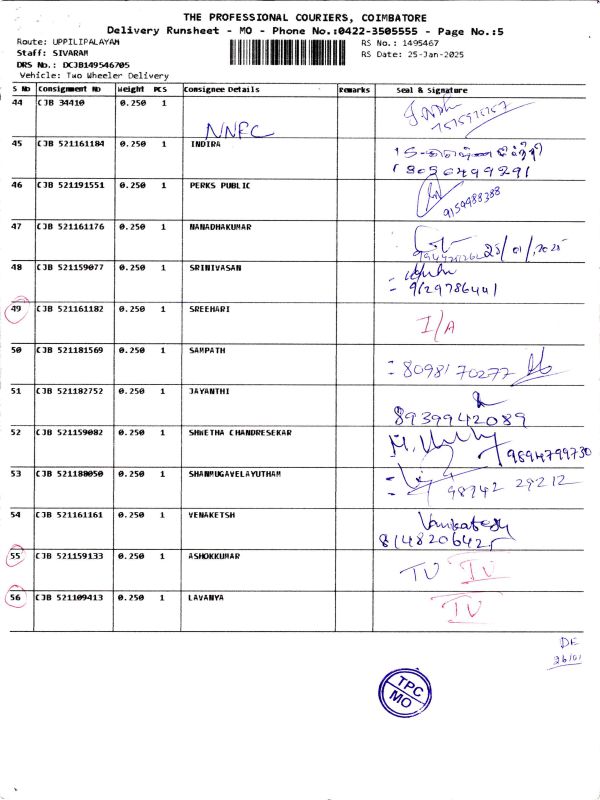 THE PROFESSIONAL COURIERS, COIMBATORE
Delivery Runsheet - MO - Phone No.:0422-3505555 - Page No.:5
Route: UPPILIPALAYAM RS No.: 1495467
Staff: SIVARAM RS Date: 25-Jan-2025
DRS No.: DCJB149546705
Vehicle: Two Wheeler Delivery
S No Consignment No Weight PCS Consignee Details Remarks Seal & Signature
44 CJB 34410 0.250 1
NNFC
45 CJB 521161184 0.250 1 INDIRA
8056499291
46 CJB 521191551 0.250 1 PERKS PUBLIC
9159488388
47 CJB 521161176 0.250 1 NANADHAKUMAR
25/01/2025
48 CJB 521159077 0.250 1 SRINIVASAN
9129786441
49 CJB 521161182 0.250 1 SREEHARI
I/A
50 CJB 521181569 0.250 1 SAMPATH
= 8098170277
51 CJB 521182752 0.250 1 JAYANTHI
8939942089
52 CJB 521159082 0.250 1 SHWETHA CHANDRESEKAR
9894799730
53 CJB 521188050 0.250 1 SHANMUGAVELAYUTHAM
98942 29212
54 CJB 521161161 0.250 1 VENAKETSH
Vankatesh
8148206425
55 CJB 521159133 0.250 1 ASHOKKUMAR
IV IV
56 CJB 521109413 0.250 1 LAVANYA
IV
DE
26/01
TPC
MO